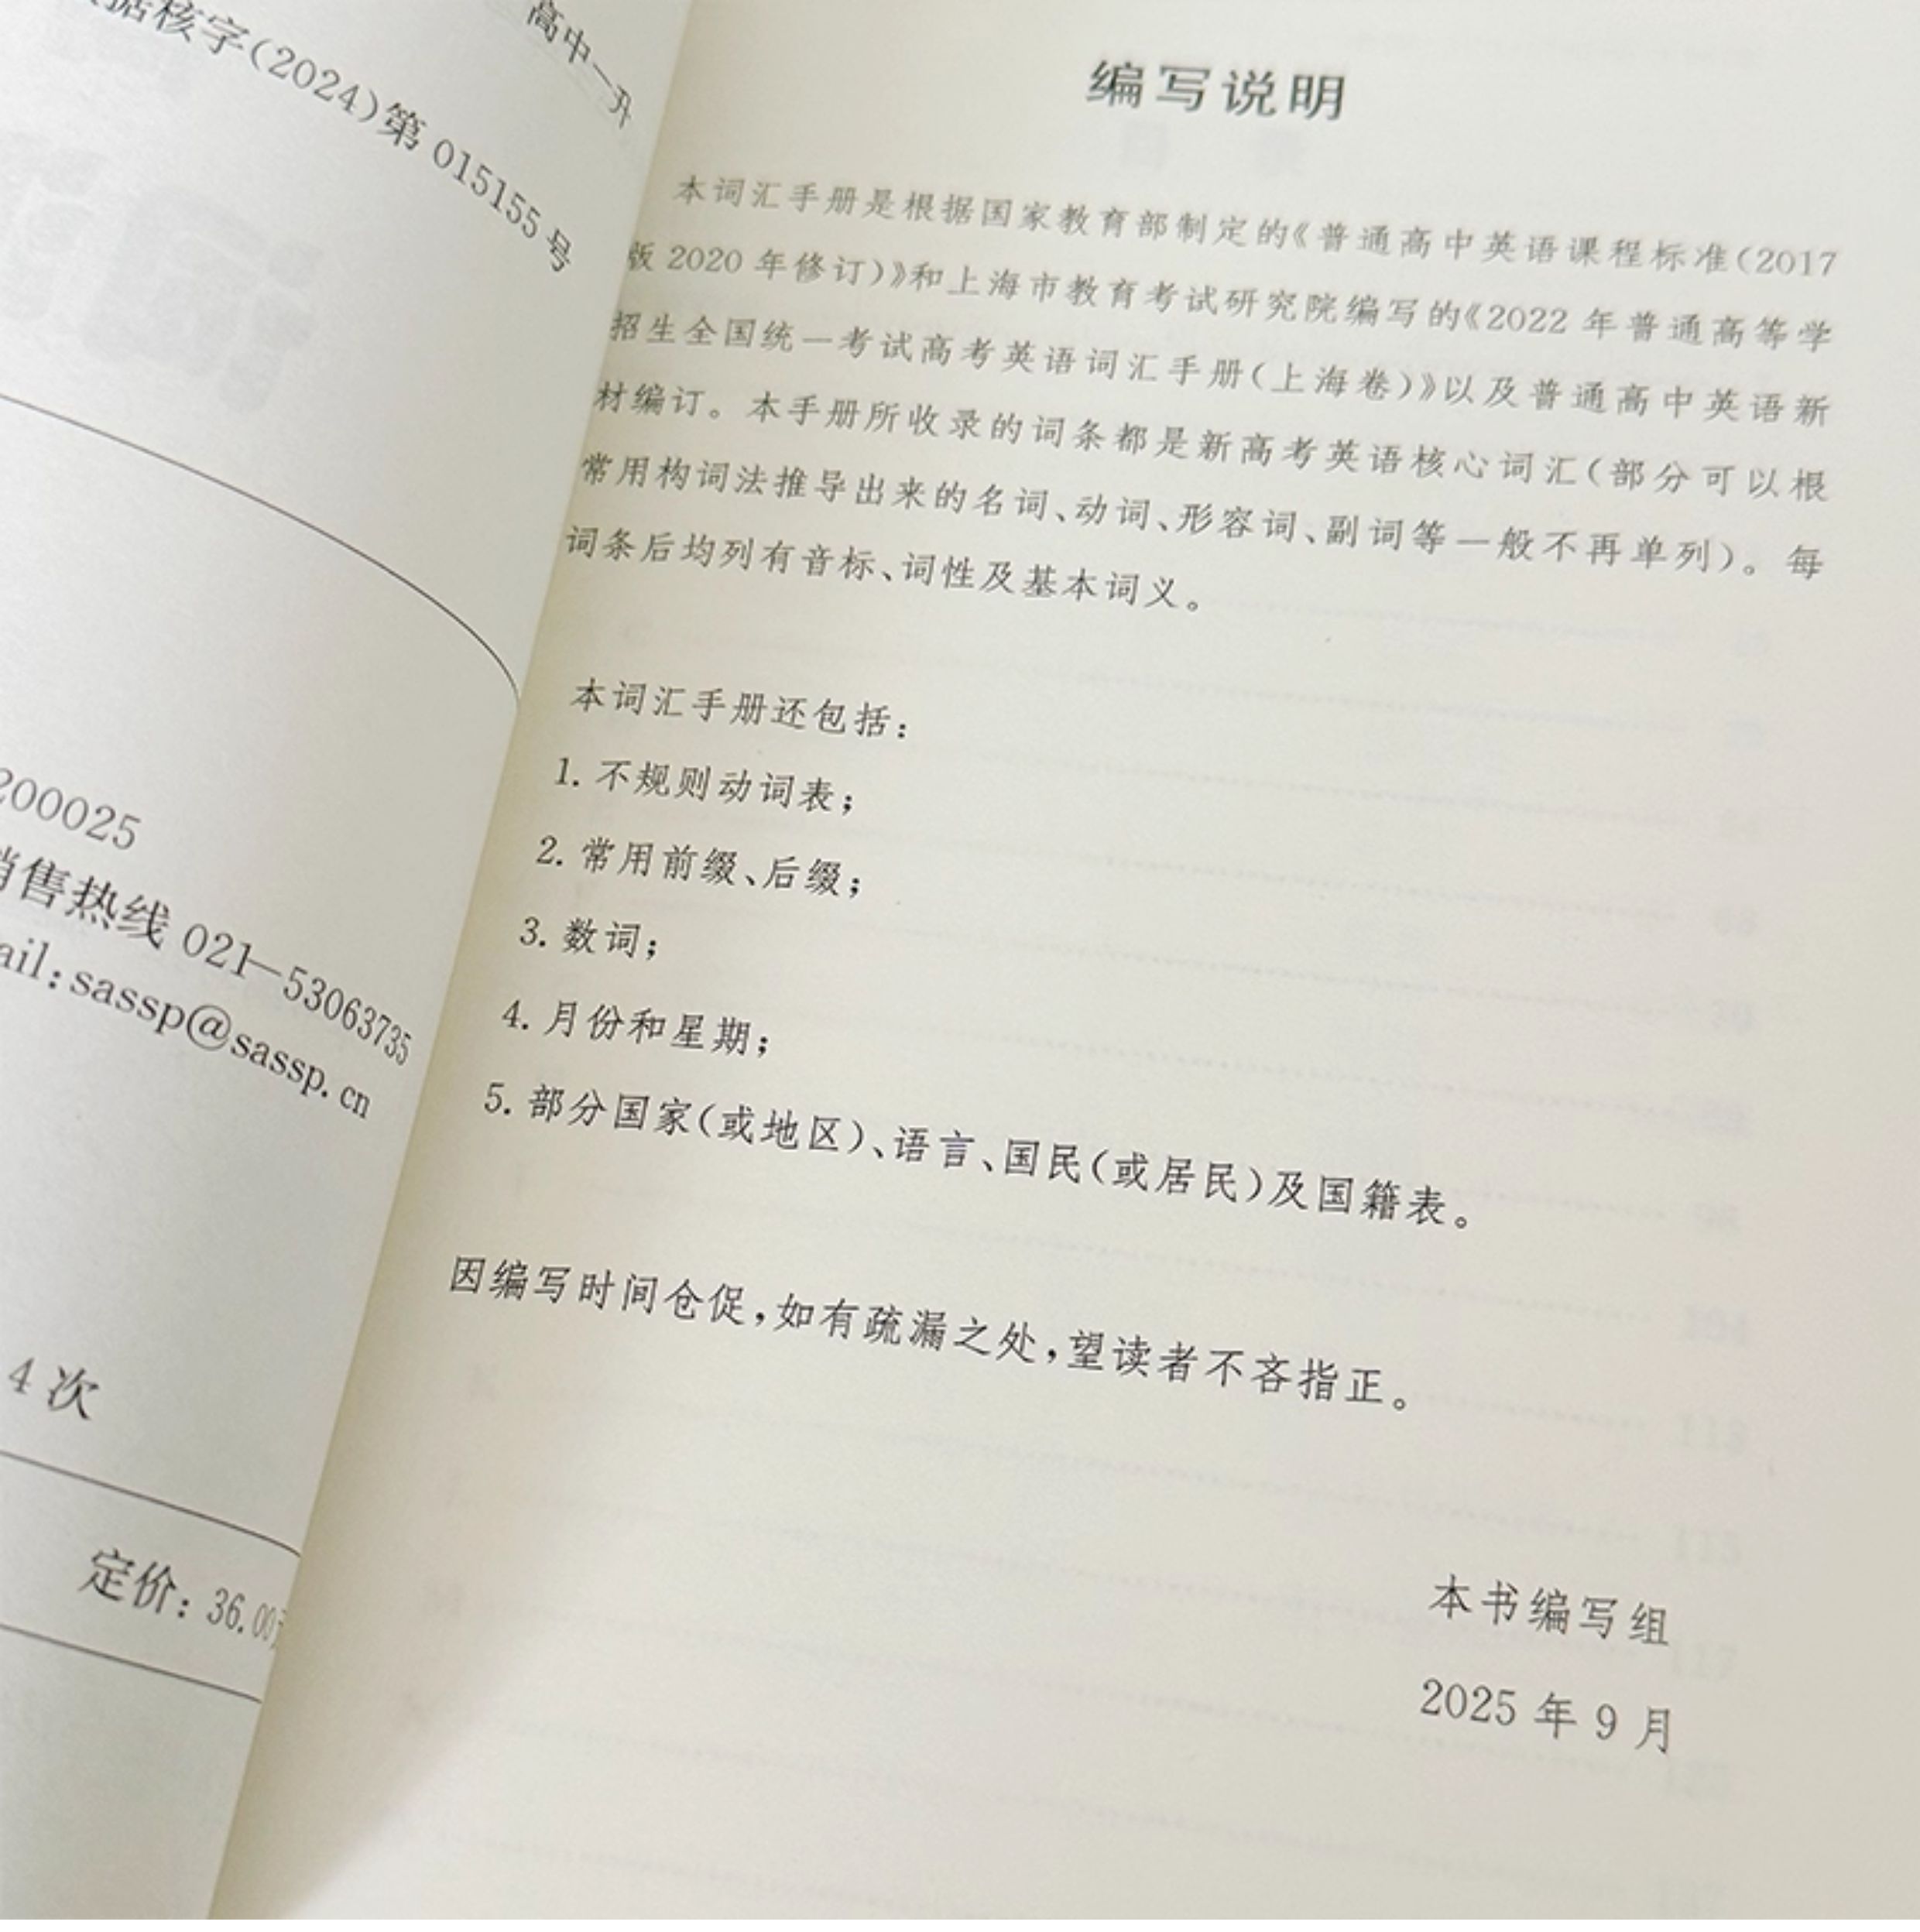 高中—升
据核字(2024)第 015155 号
200025
销售热线 021—53063735
ail:sassp@sassp.cn
4 次
定价:36.00元
编写说明
本词汇手册是根据国家教育部制定的《普通高中英语课程标准(2017
版 2020 年修订)》和上海市教育考试研究院编写的《2022 年普通高等学
招生全国统一考试高考英语词汇手册(上海卷)》以及普通高中英语新
材编订。本手册所收录的词条都是新高考英语核心词汇(部分可以根
常用构词法推导出来的名词、动词、形容词、副词等一般不再单列)。每
词条后均列有音标、词性及基本词义。
本词汇手册还包括:
1. 不规则动词表;
2. 常用前缀、后缀;
3. 数词;
4. 月份和星期;
5. 部分国家(或地区)、语言、国民(或居民)及国籍表。
因编写时间仓促,如有疏漏之处,望读者不吝指正。
本书编写组
2025 年 9 月